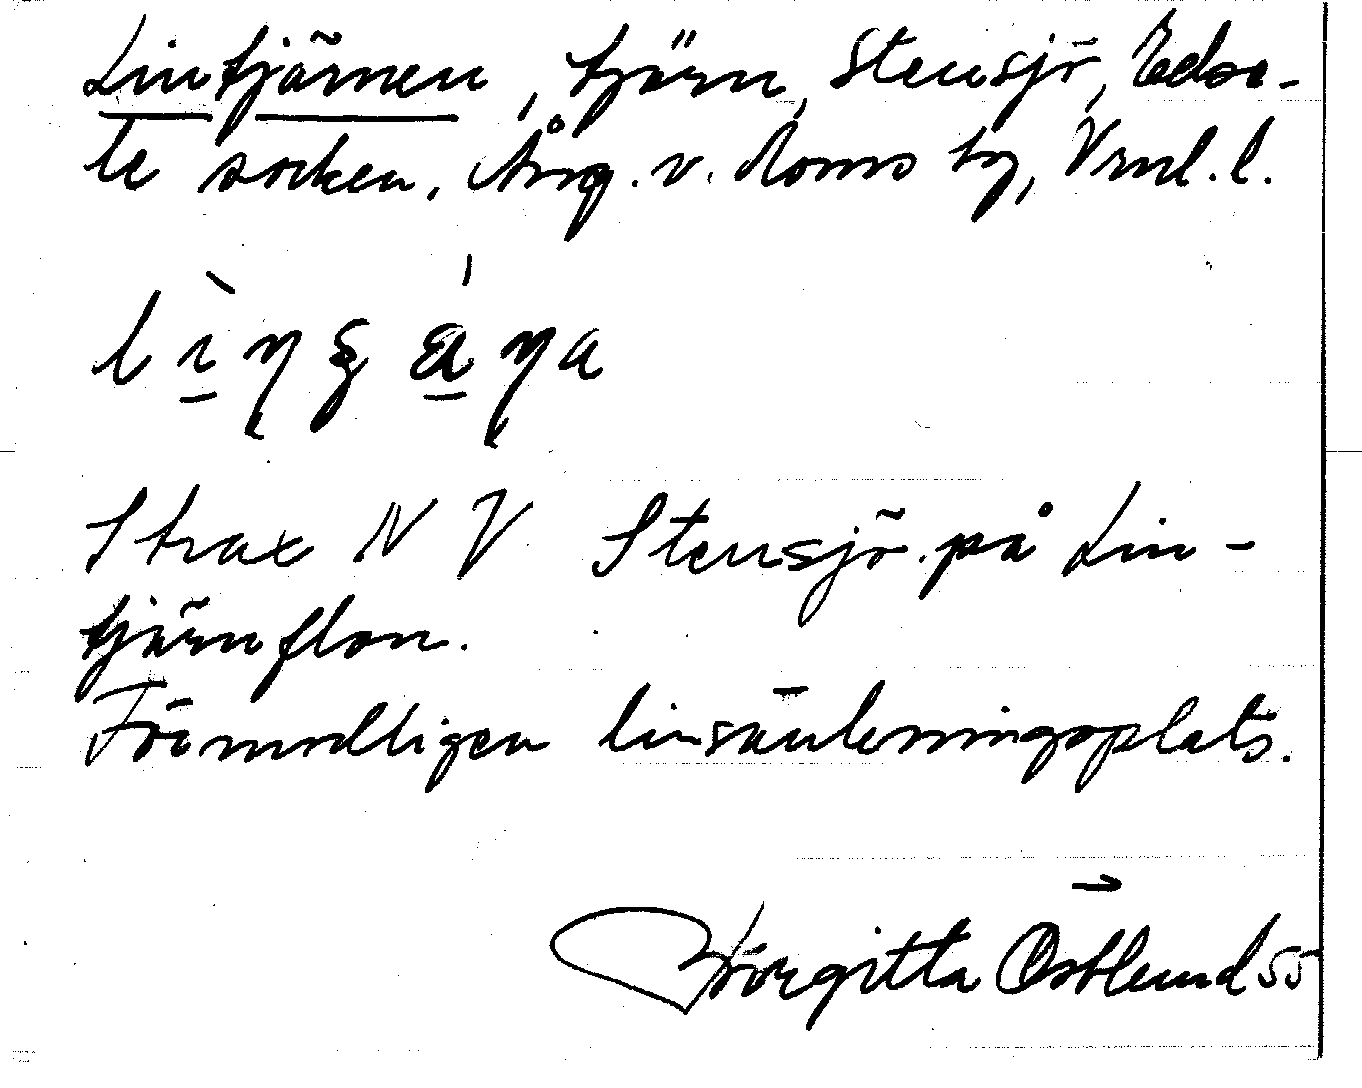 Lintjärnen, tjärn, Stensjö, Edse-
le socken, Ång. v. Roms tg, Vrml. l.
Strax NV Stensjö på Lin-
tjärnflon.
Förmodligen linsänkningsplats.
Birgitta Östlund 55